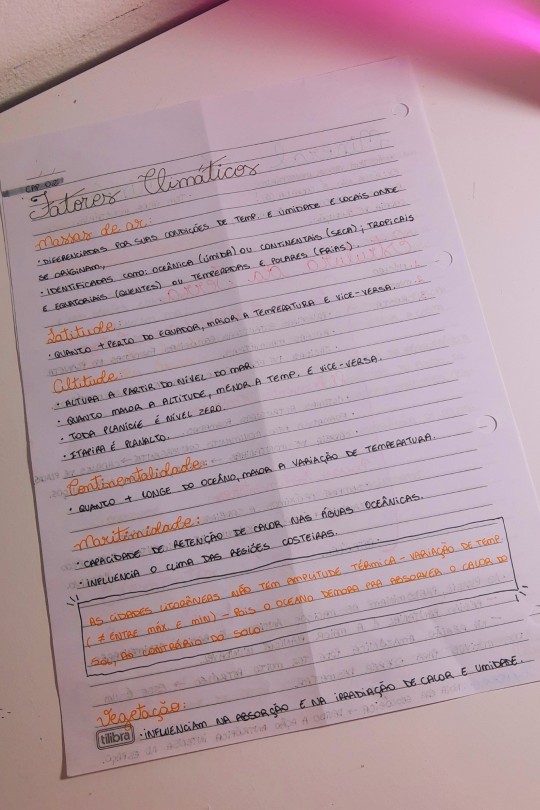 CAP. 02
Fatores Climáticos
Massas de ar:
· DIFERENCIADAS POR SUAS CONDIÇÕES DE TEMP. E UMIDADE E LOCAIS ONDE
SE ORIGINAM,
· IDENTIFICADAS COMO: OCEÂNICA (ÚMIDA) OU CONTINENTAIS (SECA); TROPICAIS
E EQUATORIAIS (QUENTES) OU TEMPERADAS E POLARES (FRIAS).
Latitude:
· QUANTO + PERTO DO EQUADOR, MAIOR A TEMPERATURA E VICE-VERSA.
Altitude:
· ALTURA A PARTIR DO NÍVEL DO MAR.
· QUANTO MAIOR A ALTITUDE, MENOR A TEMP. E VICE-VERSA.
· TODA PLANICIE É NÍVEL ZERO.
· ITAPIRA É PLANALTO.
Continentalidade:
· QUANTO + LONGE DO OCEANO, MAIOR A VARIAÇÃO DE TEMPERATURA.
Maritimidade:
· CAPACIDADE DE RETENÇÃO DE CALOR NAS ÁGUAS OCEÂNICAS.
· INFLUENCIA O CLIMA DAS REGIÕES COSTEIRAS.
AS CIDADES LITORÂNEAS NÃO TEM AMPLITUDE TÉRMICA - VARIAÇÃO DE TEMP
( ≠ ENTRE MÁX E MIN) - POIS O OCEANO DEMORA PRA ABSORVER O CALOR DO
SOL, AO CONTRÁRIO DO SOLO.
Vegetação:
· INFLUENCIAM NA ABSORÇÃO E NA IRRADIAÇÃO DE CALOR E UMIDADE.
tilibra